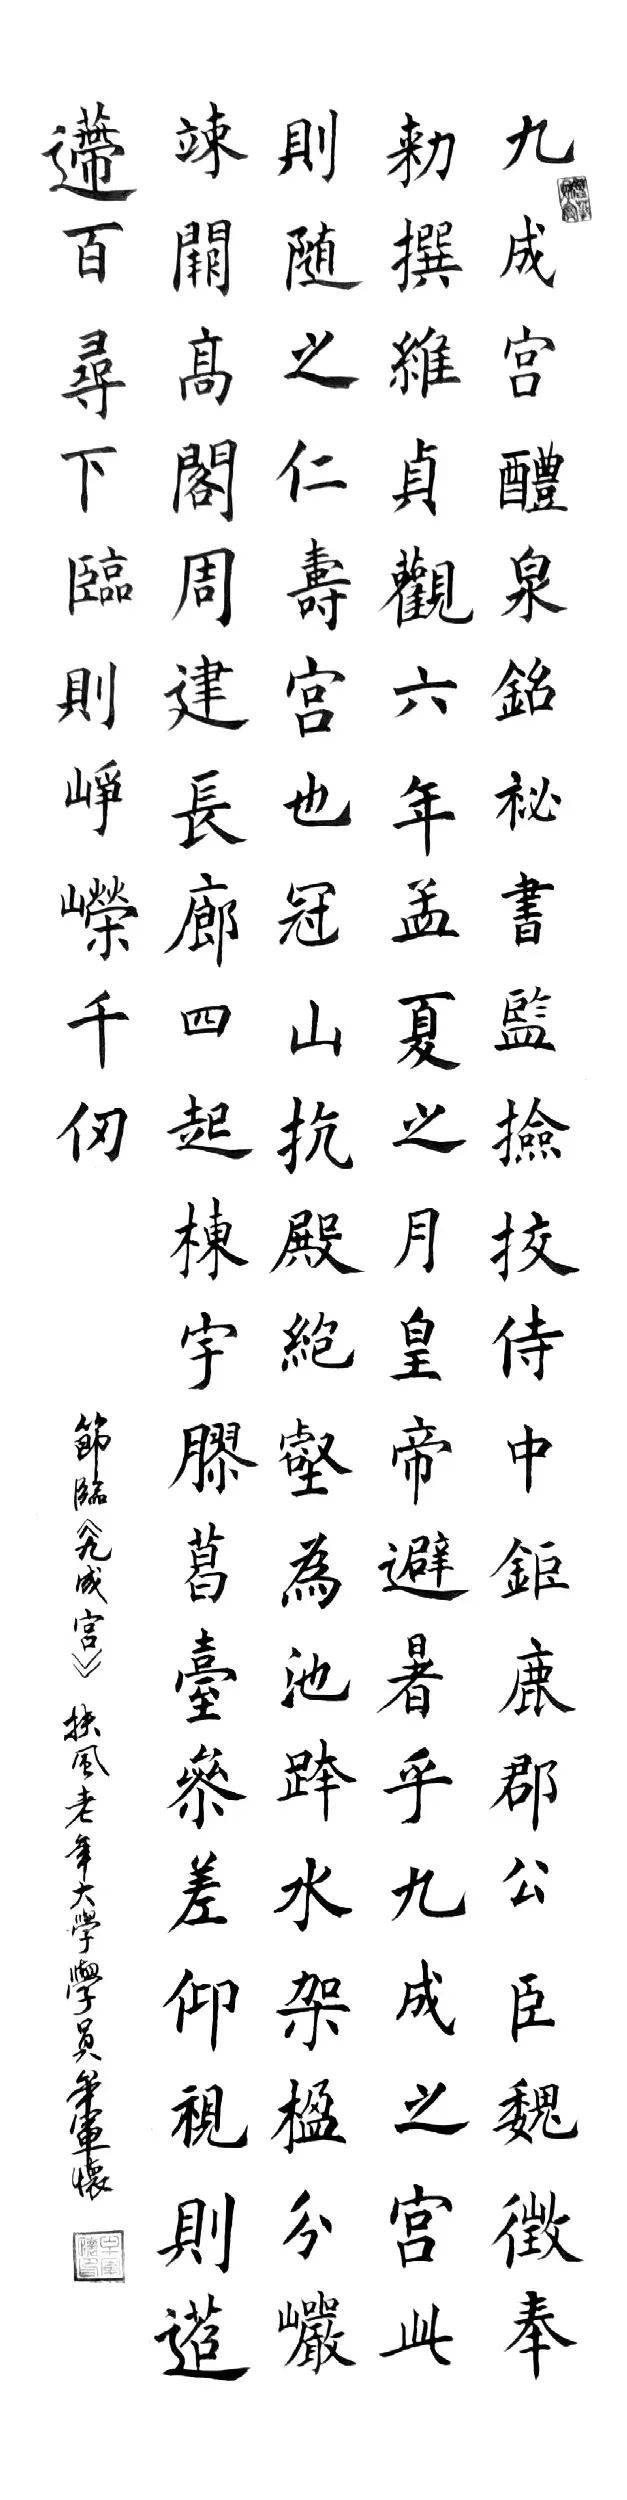 九成宫醴泉銘祕書監撿挍侍中鉅鹿郡公臣魏徵奉
勑撰維貞觀六年孟夏之月皇帝避暑乎九成之宫此
則随之仁壽宫也冠山抗殿絶壑為池跨水架楹分巖
竦闕高閣周建長廊四起棟宇膠葛臺參差仰視則迢
遰百尋下臨則崢嶸千仞
節臨《九成宫》扶風老年大學學員軍懷